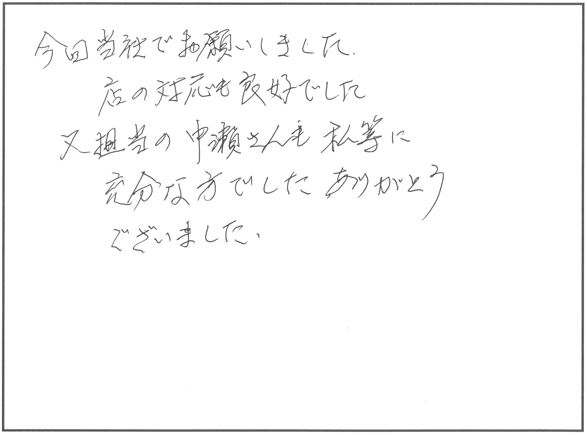 今回当社でお願いしました.
店の対応も良好でした
又担当の中瀬さんも私等に
充分な方でした ありがとう
ございました.